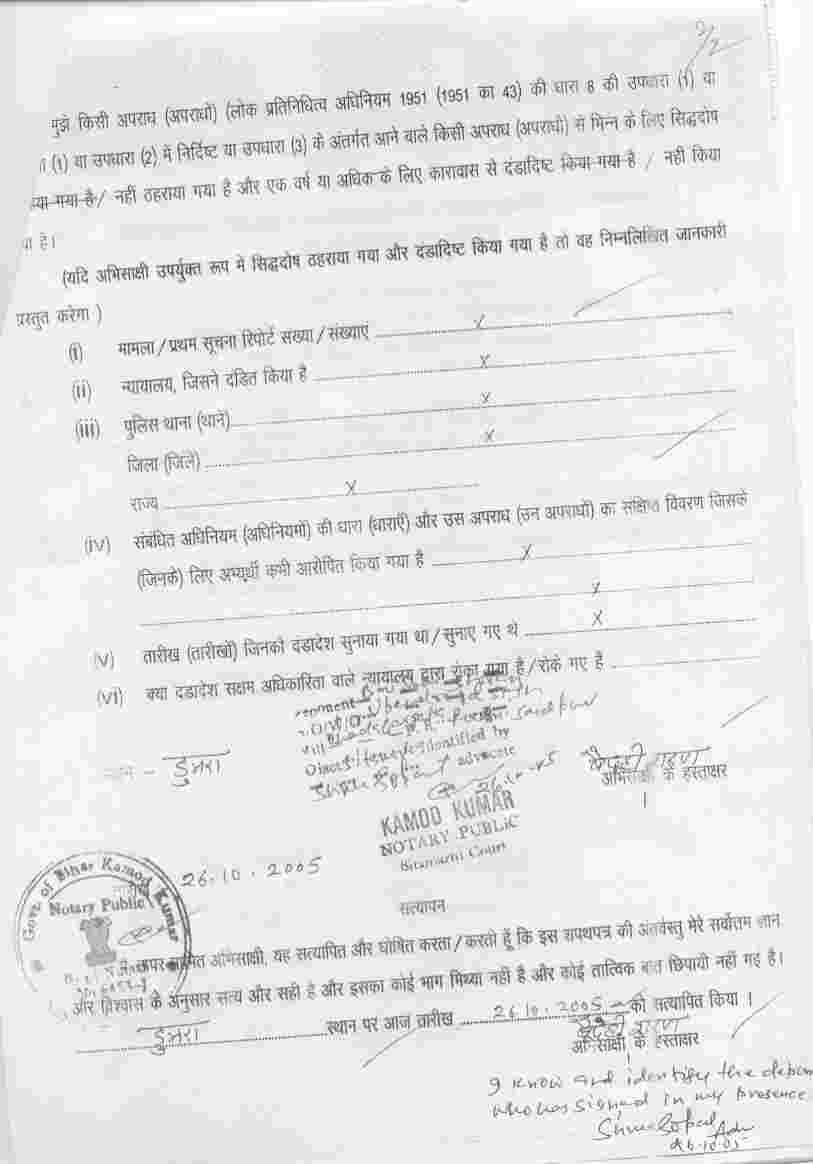 2/2
मुझे किसी अपराध (अपराधों) (लोक प्रतिनिधित्व अधिनियम 1951 (1951 का 43) की धारा 8 की उपधारा (1) या
(1) या उपधारा (2) में निर्दिष्ट या उपधारा (3) के अंतर्गत आने वाले किसी अपराध (अपराधों) से भिन्न के लिए सिद्धदोष
गया है / नहीं ठहराया गया है और एक वर्ष या अधिक के लिए कारावास से दंडादिष्ट किया गया है / नहीं किया
है।
(यदि अभिसाक्षी उपर्युक्त रूप में सिद्धदोष ठहराया गया और दंडादिष्ट किया गया है तो वह निम्नलिखित जानकारी
प्रस्तुत करेगा )
(i) मामला / प्रथम सूचना रिपोर्ट संख्या / संख्याएं x
(ii) न्यायालय, जिसने दंडित किया है x
(iii) पुलिस थाना (थाने) x
जिला (जिले) x
राज्य x
(iv) संबंधित अधिनियम (अधिनियमों) की धारा (धाराएँ) और उस अपराध (उन अपराधों) का संक्षिप्त विवरण जिसके
(जिनके) लिए अभ्यर्थी कभी आरोपित किया गया है x
x
(v) तारीख (तारीखों) जिनको दंडादेश सुनाया गया था / सुनाए गए थे x
(vi) क्या दंडादेश सक्षम अधिकारिता वाले न्यायालय द्वारा रोका गया है / रोके गए है
identified by
advocate
स्थान - डुमरा
26.10.05
अभिसाक्षी के हस्ताक्षर
KAMOD KUMAR
NOTARY PUBLIC
Sitamarhi Court
26.10.2005
Govt of Bihar Kamod Kumar
Notary Public
सत्यापन
अभिसाक्षी, यह सत्यापित और घोषित करता / करती हूँ कि इस शपथपत्र की अंतर्वस्तु मेरे सर्वोत्तम ज्ञान
और विश्वास के अनुसार सत्य और सही है और इसका कोई भाग मिथ्या नहीं है और कोई तात्विक बात छिपायी नहीं गई है।
डुमरा स्थान पर आज तारीख 26.10.2005 को सत्यापित किया ।
अभिसाक्षी के हस्ताक्षर
I know and identify the depon
who has signed in my presence
Adv
26.10.05